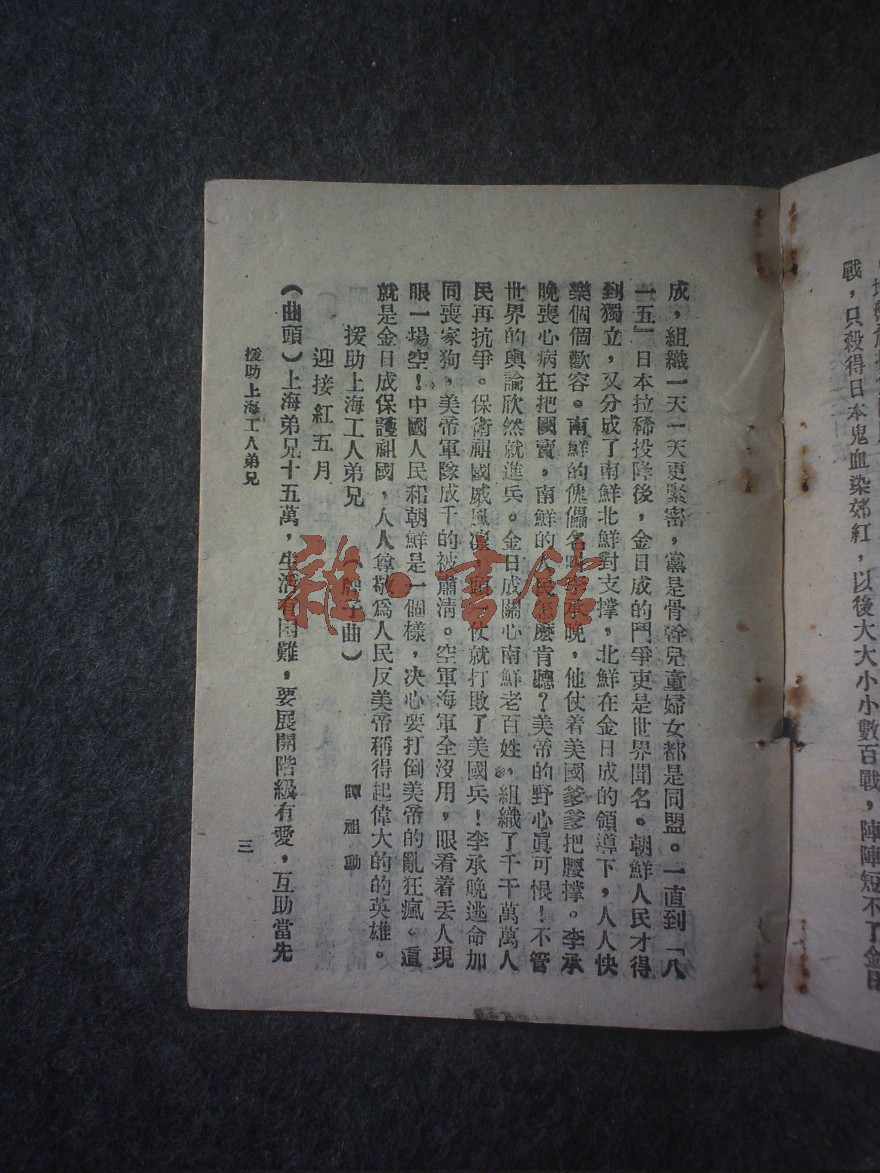 戰，只殺得日本鬼血染郊紅，以後大大小小數百戰，陣陣短不了金日
成，組織一天一天更緊密，黨是骨幹兒童婦女都是同盟。一直到「八
一五』日本拉稀投降後，金日成的鬥爭更是世界聞名。朝鮮人民才得
到獨立，又分成了南鮮北鮮對支撑，北鮮在金日成的領導下，人人快
樂個個歡容。南鮮的傀儡名叫李承晚，他仗着美國爹爹把腰撑。李承
晚喪心病狂把國賣，南鮮的人民怎麽肯聽？美帝的野心眞可恨！不管
世界的輿論欣然就進兵。金日成關心南鮮老百姓，組織了千千萬萬人
民再抗爭。保衛祖國威風凜 頭一仗就打敗了美國兵！李承晚逃命加
同喪家狗，美帝軍隊成千的被肅淸。空軍海軍全沒用，眼看着丟人現
眼一場空！中國人民和朝鮮是一個樣，决心要打倒美帝的亂狂瘋。這
就是金日成保護祖國，人人尊敬爲人民反美帝稱得起偉大的的英雄。
援助上海工人弟兄 （牌子曲） 譚祖勳
迎接紅五月
（曲頭）上海弟兄十五萬，生活有困難，要展開階級有愛，互助當先
援助上海工人弟兄 三
雜·書館